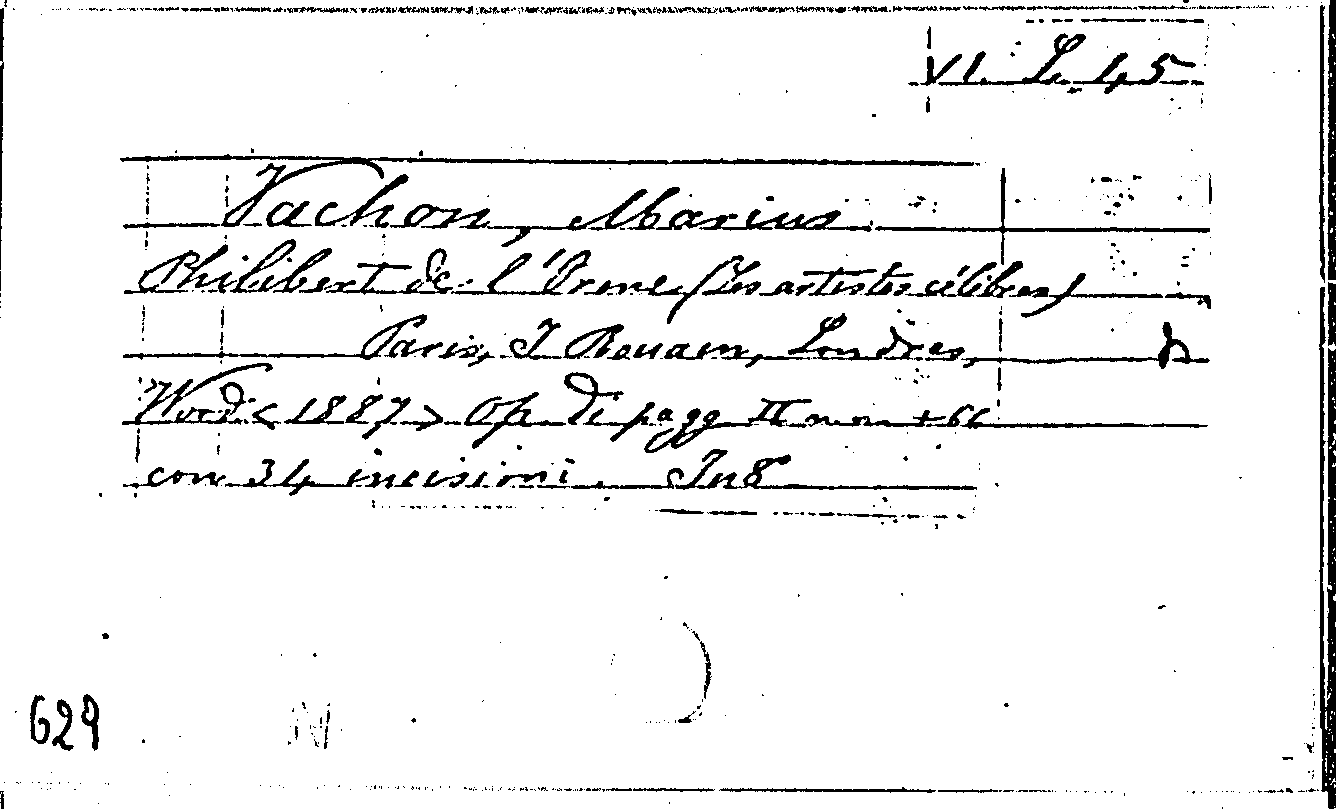 VI. L. 45
Vachon, Marius
Philibert de l'Orme (Les artistes célèbres)
Paris, J Rouam, Londres,
Wood < 1887 > Op. di pagg II n n +
con 34 incisioni. In 8°
629